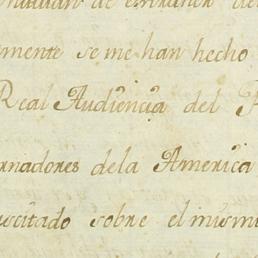 de
mente se me han hecho
Real Audiencia del
rnadores dela America
uscitado sobre el mism